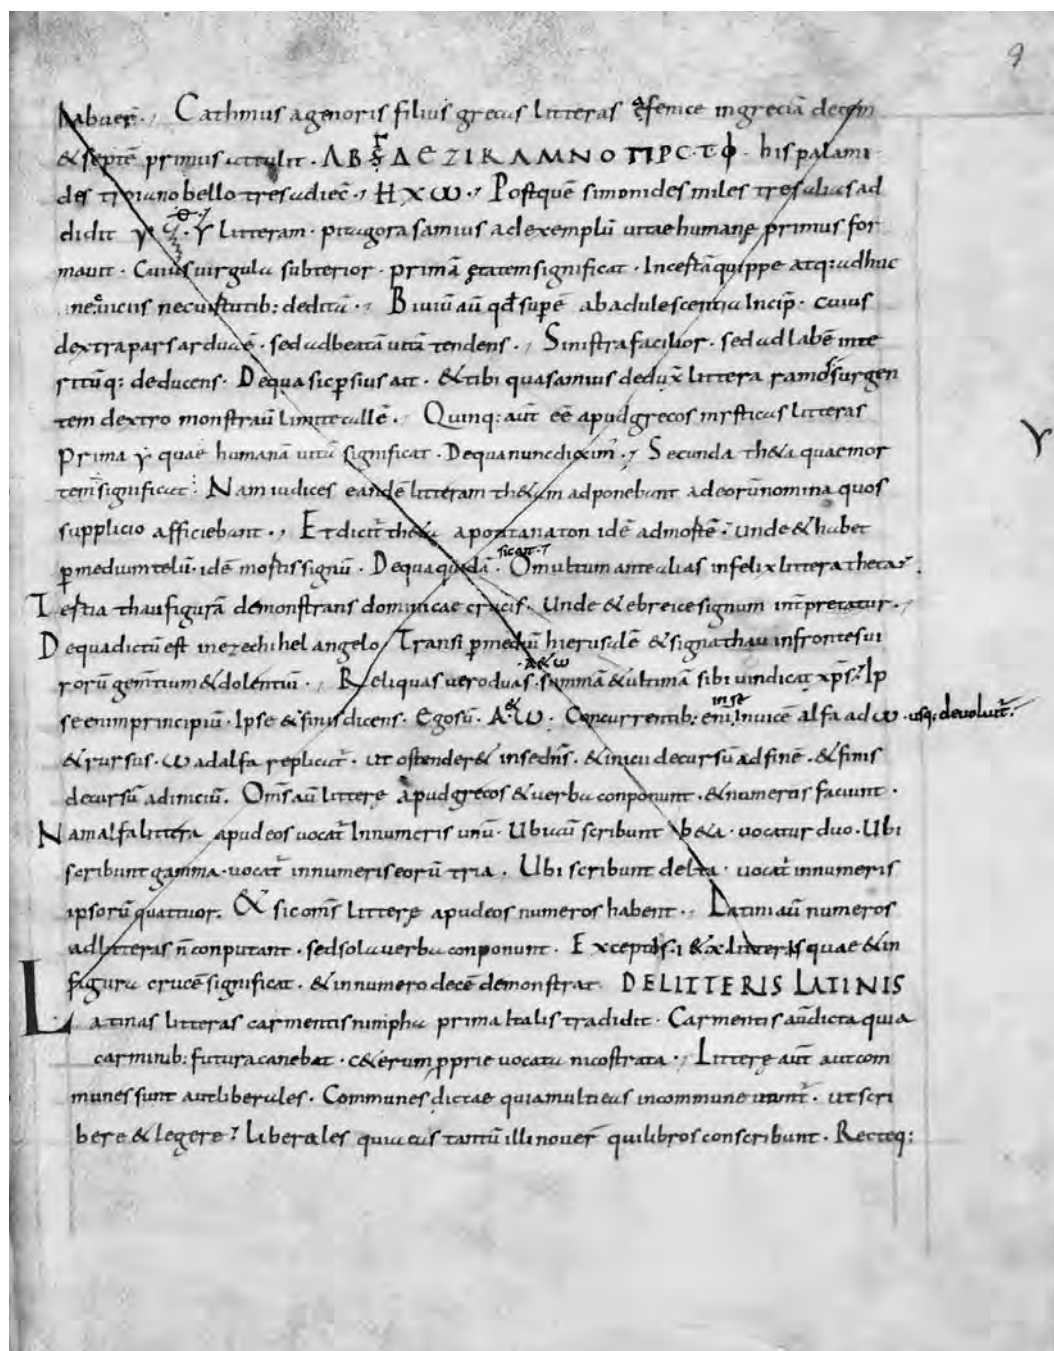 9
habuer̄ · Cathmus agenoris filius grecas litteras ę fenice in greciā decem
& septē primus attulit · Λ Β Γ Δ Є Z I K Λ M N O Π P C · T Φ · his palami
des troiano bello tres adiec̄ · H X ω · Postquē simonides miles tres alias ad
didit Ψ Θ · ϒ litteram · pitagora samius ad exemplū uitae humanę primus for
mauit · Cuius uirgula subterior · primā ętatem significat · Incertā quippe atq: adhuc
neq uiciis nec uirtutib: deditā · Biuiū aū qđ supē ab adulescentia Incip̄ · cuius
dextra pars ardua ē · sed ad beatā uitā tendens · Sinistra facilior · sed ad labē inte
ritūq: deducens · De qua sic persius ait · & tibi qua samius deduẋ littera ramos surgen
tem dextro monstrau̅ limite callē · Quinq: aut̄ eē apud grecos mysticas litteras
Prima ϒ quae humanā uitā significat · De qua nunc diximꝰ · Secunda th&a quae mor
tem significat · Nam iudices eandē litteram th&am adponebant ad eorū nomina quos
supplicio afficiebant · Et dicit̄ th&a apo tanaton idē ad mortē · unde & habet
ꝑ medium telū · idē mortis signū · De qua quidā · sic ait · O multum ante alias infelix littera theta ·
Tertia thau figurā demonstrans dominicae crucis · Unde & ebreice signum int̄pretatur ·
De qua dictū est in ezechihel angelo Transi ꝑ mediū hierusalē & signa thau in frontes ui
rorū gem̄tium & dolentiū · Reliquas uero duas · A & ω · summā & ultimā sibi uindicat xp̄s · Ip
se enim principiū · Ipse & finis dicens · Ego sū · A · & ω · Concurrentib: eni in se Inuicē alfa ad ω · usq: deuoluit̄ ·
& rursus · ω ad alfa replicat̄ · ut ostender& in se dn̄s · & inicii decursū ad finē · & finis
decursū ad iniciū · Om̄s aū litterę apud grecos & uerba conponunt · & numeros faciunt ·
Nam alfa littera apud eos uocat̄ In numeris unū · Ubi aū scribunt b&a · uocatur duo · Ubi
scribunt gamma · uocat̄ in numeris eorū tria · Ubi scribunt delta · uocat̄ in numeris
ipsorū quattuor · & sic om̄s litterę apud eos numeros habent · Latini aū numeros
ad litteras n̄ conputant · sed sola uerba conponunt · Exceptis · i & x litteris quae & in
figura crucē significat · & in numero decē demonstrat · DE LITTERIS LATINIS
Latinas litteras carmentis nimpha prima Italis tradidit · Carmentis aū dicta quia
carminib: futura canebat · c&erum ꝓprie uocata nicostrata · Litterę aut̄ aut com
munes sunt aut liberales · Communes dictae quia multi eas in commune utunt̄ · ut scri
bere & legere · Liberales quia eas tantū illi nouer̄ qui libros conscribunt · Recteq:
ϒ